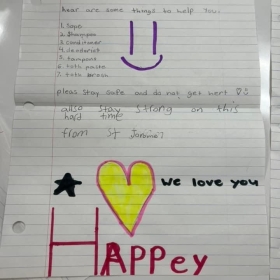 hear are some things to help you:
1. Sope
2. Shampoo
3. conditoner
4. deoderiet
5. tampond
6. toth paste
7. toth brash
pleas stay safe and do not get hert
also stay strong on this
hard time
from St
we love you
HAPPey